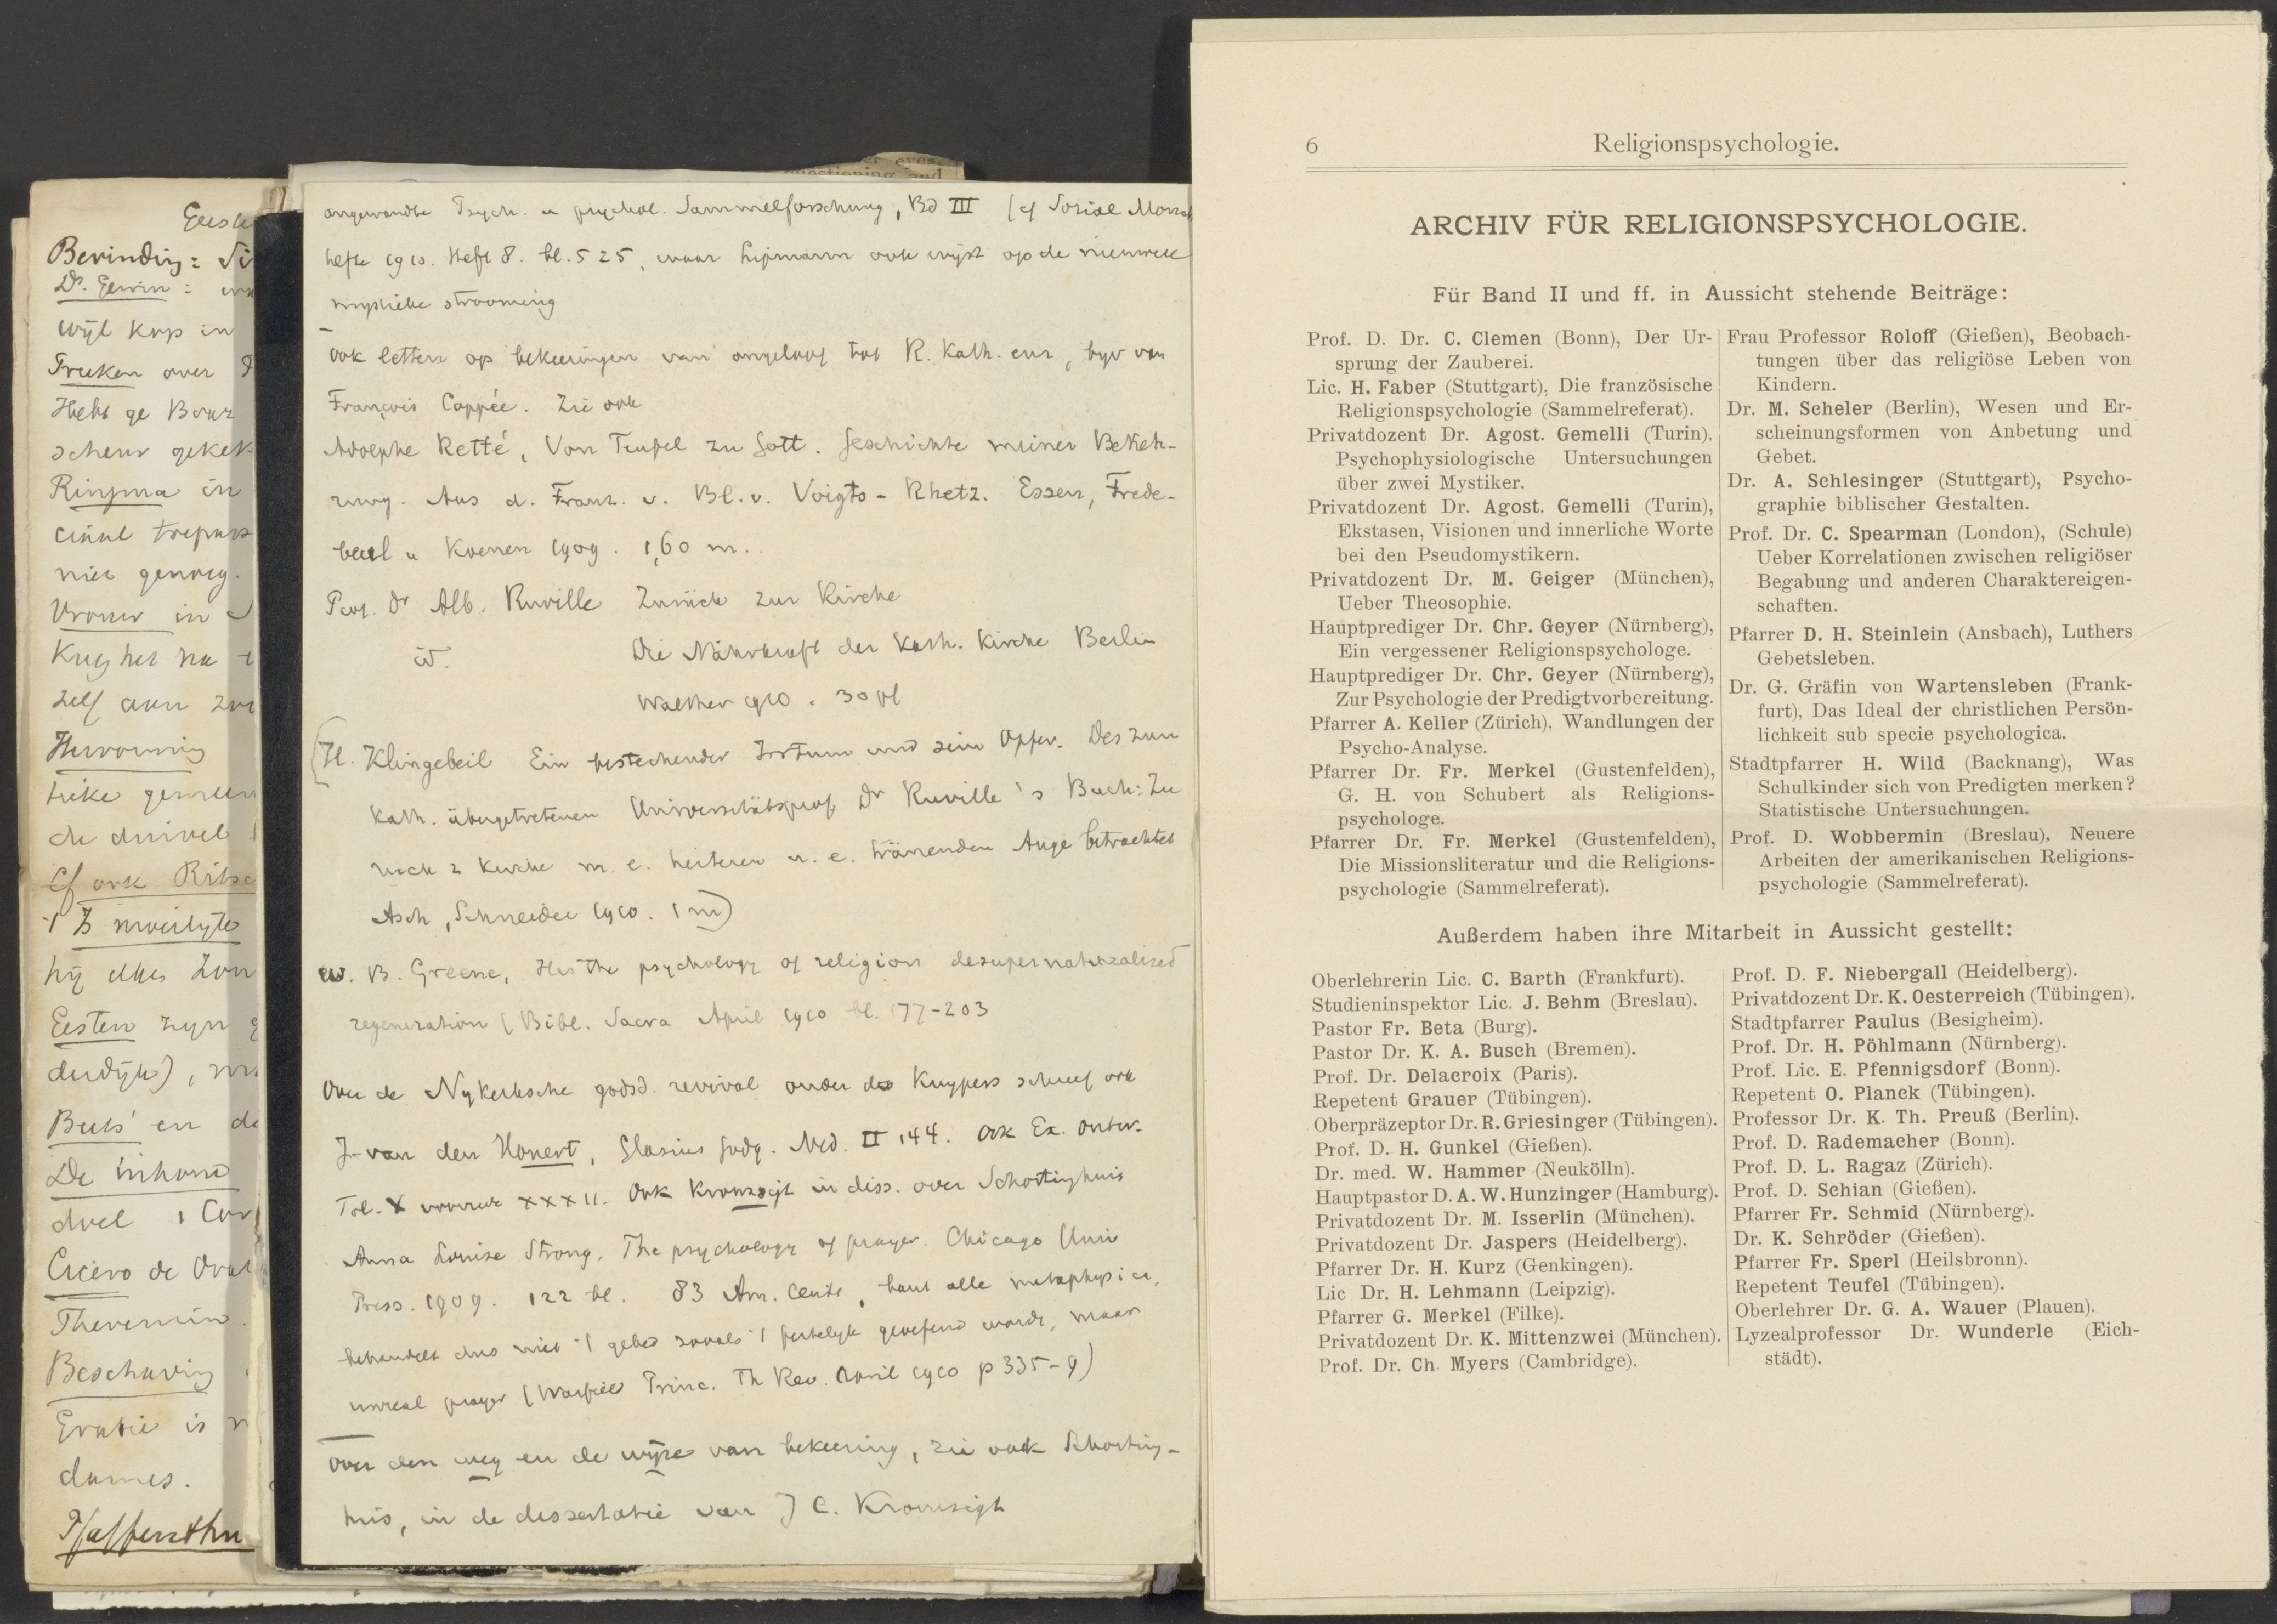 er eves.
questioning and
Bevinding:
Dr.
wijl kop in
over
Hebt ge
in
niet genoeg.
in
zelf aan
cf ook
hij
Eesten zijn
en de
De inhoud
doel 1 Cor
Cicero de Orat
Theremin.
Beschaving
is
dames.
angewandte Psych. u psychol. Sammelforschung, Bd III (cf Sozial.
hefte 1910. Heft 8. bl. 525, waar Lipmann ook wijst op de nieuwere
mystieke strooming
Ook letten op bekeeringen van ongeloof tot R. Kath. enz, bijv van
François Coppée. Zie ook
Adolphe Retté, Von Teufel zu Gott. Geschichte meiner Bekeh-
rung. Aus d. Franz. v. Bl. v. Voigts-Rhetz. Essen, Frede-
beul u Koenen 1909. 1,60 m.
Prof. Dr Alb. Ruville Zurück zur Kirche
id. Die Nährkraft der Kath. Kirche Berlin
Walther 1910. 30 pf
(H. Klingebeil Ein bestechender Irrtum und sein Opfer. Des zum
Kath. übergetretenen Universitätsprof Dr Ruville's Buch: Zu
rück z Kirche m. e. heiteren u. e. tränenden Auge betrachtet
Asch, Schneider 1910. 1 m)
W. B. Greene, Has the psychology of religion desupernaturalised
regeneration (Bibl. Sacra April 1910 bl. 177-203
Over de Nykerksche godsd. revival onder ds Kuypers schreef ook
J. van den Honert, Glasius Godg. Ned. II 144. Ook Ex. Ontw.
Tol. X voorrede XXXII. Ook Kromsigt in diss. over Schortinghuis
Anna Louise Strong. The psychology of prayer. Chicago Univ
Press. 1909. 122 bl. 83 Am. Cents, bant alle metaphysica,
behandelt dus niet 't gebed zooals 't feitelijk geoefend wordt, maar
unreal prayer (Warfield Princ. Th Rev. April 1910 p 335-9)
Over den weg en de wijze van bekeering, zie ook Schorting-
huis, in de dissertatie van J C. Kromsigt
6 Religionspsychologie.
ARCHIV FÜR RELIGIONSPSYCHOLOGIE.
Für Band II und ff. in Aussicht stehende Beiträge:
Prof. D. Dr. C. Clemen (Bonn), Der Ur-
sprung der Zauberei.
Lic. H. Faber (Stuttgart), Die französische
Religionspsychologie (Sammelreferat).
Privatdozent Dr. Agost. Gemelli (Turin),
Psychophysiologische Untersuchungen
über zwei Mystiker.
Privatdozent Dr. Agost. Gemelli (Turin),
Ekstasen, Visionen und innerliche Worte
bei den Pseudomystikern.
Privatdozent Dr. M. Geiger (München),
Ueber Theosophie.
Hauptprediger Dr. Chr. Geyer (Nürnberg),
Ein vergessener Religionspsychologe.
Hauptprediger Dr. Chr. Geyer (Nürnberg),
Zur Psychologie der Predigtvorbereitung.
Pfarrer A. Keller (Zürich), Wandlungen der
Psycho-Analyse.
Pfarrer Dr. Fr. Merkel (Gustenfelden),
G. H. von Schubert als Religions-
psychologe.
Pfarrer Dr. Fr. Merkel (Gustenfelden),
Die Missionsliteratur und die Religions-
psychologie (Sammelreferat).
Frau Professor Roloff (Gießen), Beobach-
tungen über das religiöse Leben von
Kindern.
Dr. M. Scheler (Berlin), Wesen und Er-
scheinungsformen von Anbetung und
Gebet.
Dr. A. Schlesinger (Stuttgart), Psycho-
graphie biblischer Gestalten.
Prof. Dr. C. Spearman (London), (Schule)
Ueber Korrelationen zwischen religiöser
Begabung und anderen Charaktereigen-
schaften.
Pfarrer D. H. Steinlein (Ansbach), Luthers
Gebetsleben.
Dr. G. Gräfin von Wartensleben (Frank-
furt), Das Ideal der christlichen Persön-
lichkeit sub specie psychologica.
Stadtpfarrer H. Wild (Backnang), Was
Schulkinder sich von Predigten merken?
Statistische Untersuchungen.
Prof. D. Wobbermin (Breslau), Neuere
Arbeiten der amerikanischen Religions-
psychologie (Sammelreferat).
Außerdem haben ihre Mitarbeit in Aussicht gestellt:
Oberlehrerin Lic. C. Barth (Frankfurt).
Studieninspektor Lic. J. Behm (Breslau).
Pastor Fr. Beta (Burg).
Pastor Dr. K. A. Busch (Bremen).
Prof. Dr. Delacroix (Paris).
Repetent Grauer (Tübingen).
Oberpräzeptor Dr. R. Griesinger (Tübingen).
Prof. D. H. Gunkel (Gießen).
Dr. med. W. Hammer (Neukölln).
Hauptpastor D. A. W. Hunzinger (Hamburg).
Privatdozent Dr. M. Isserlin (München).
Privatdozent Dr. Jaspers (Heidelberg).
Pfarrer Dr. H. Kurz (Genkingen).
Lic Dr. H. Lehmann (Leipzig).
Pfarrer G. Merkel (Filke).
Privatdozent Dr. K. Mittenzwei (München).
Prof. Dr. Ch. Myers (Cambridge).
Prof. D. F. Niebergall (Heidelberg).
Privatdozent Dr. K. Oesterreich (Tübingen).
Stadtpfarrer Paulus (Besigheim).
Prof. Dr. H. Pöhlmann (Nürnberg).
Prof. Lic. E. Pfennigsdorf (Bonn).
Repetent O. Planck (Tübingen).
Professor Dr. K. Th. Preuß (Berlin).
Prof. D. Rademacher (Bonn).
Prof. D. L. Ragaz (Zürich).
Prof. D. Schian (Gießen).
Pfarrer Fr. Schmid (Nürnberg).
Dr. K. Schröder (Gießen).
Pfarrer Fr. Sperl (Heilsbronn).
Repetent Teufel (Tübingen).
Oberlehrer Dr. G. A. Wauer (Plauen).
Lyzealprofessor Dr. Wunderle (Eich-
städt).